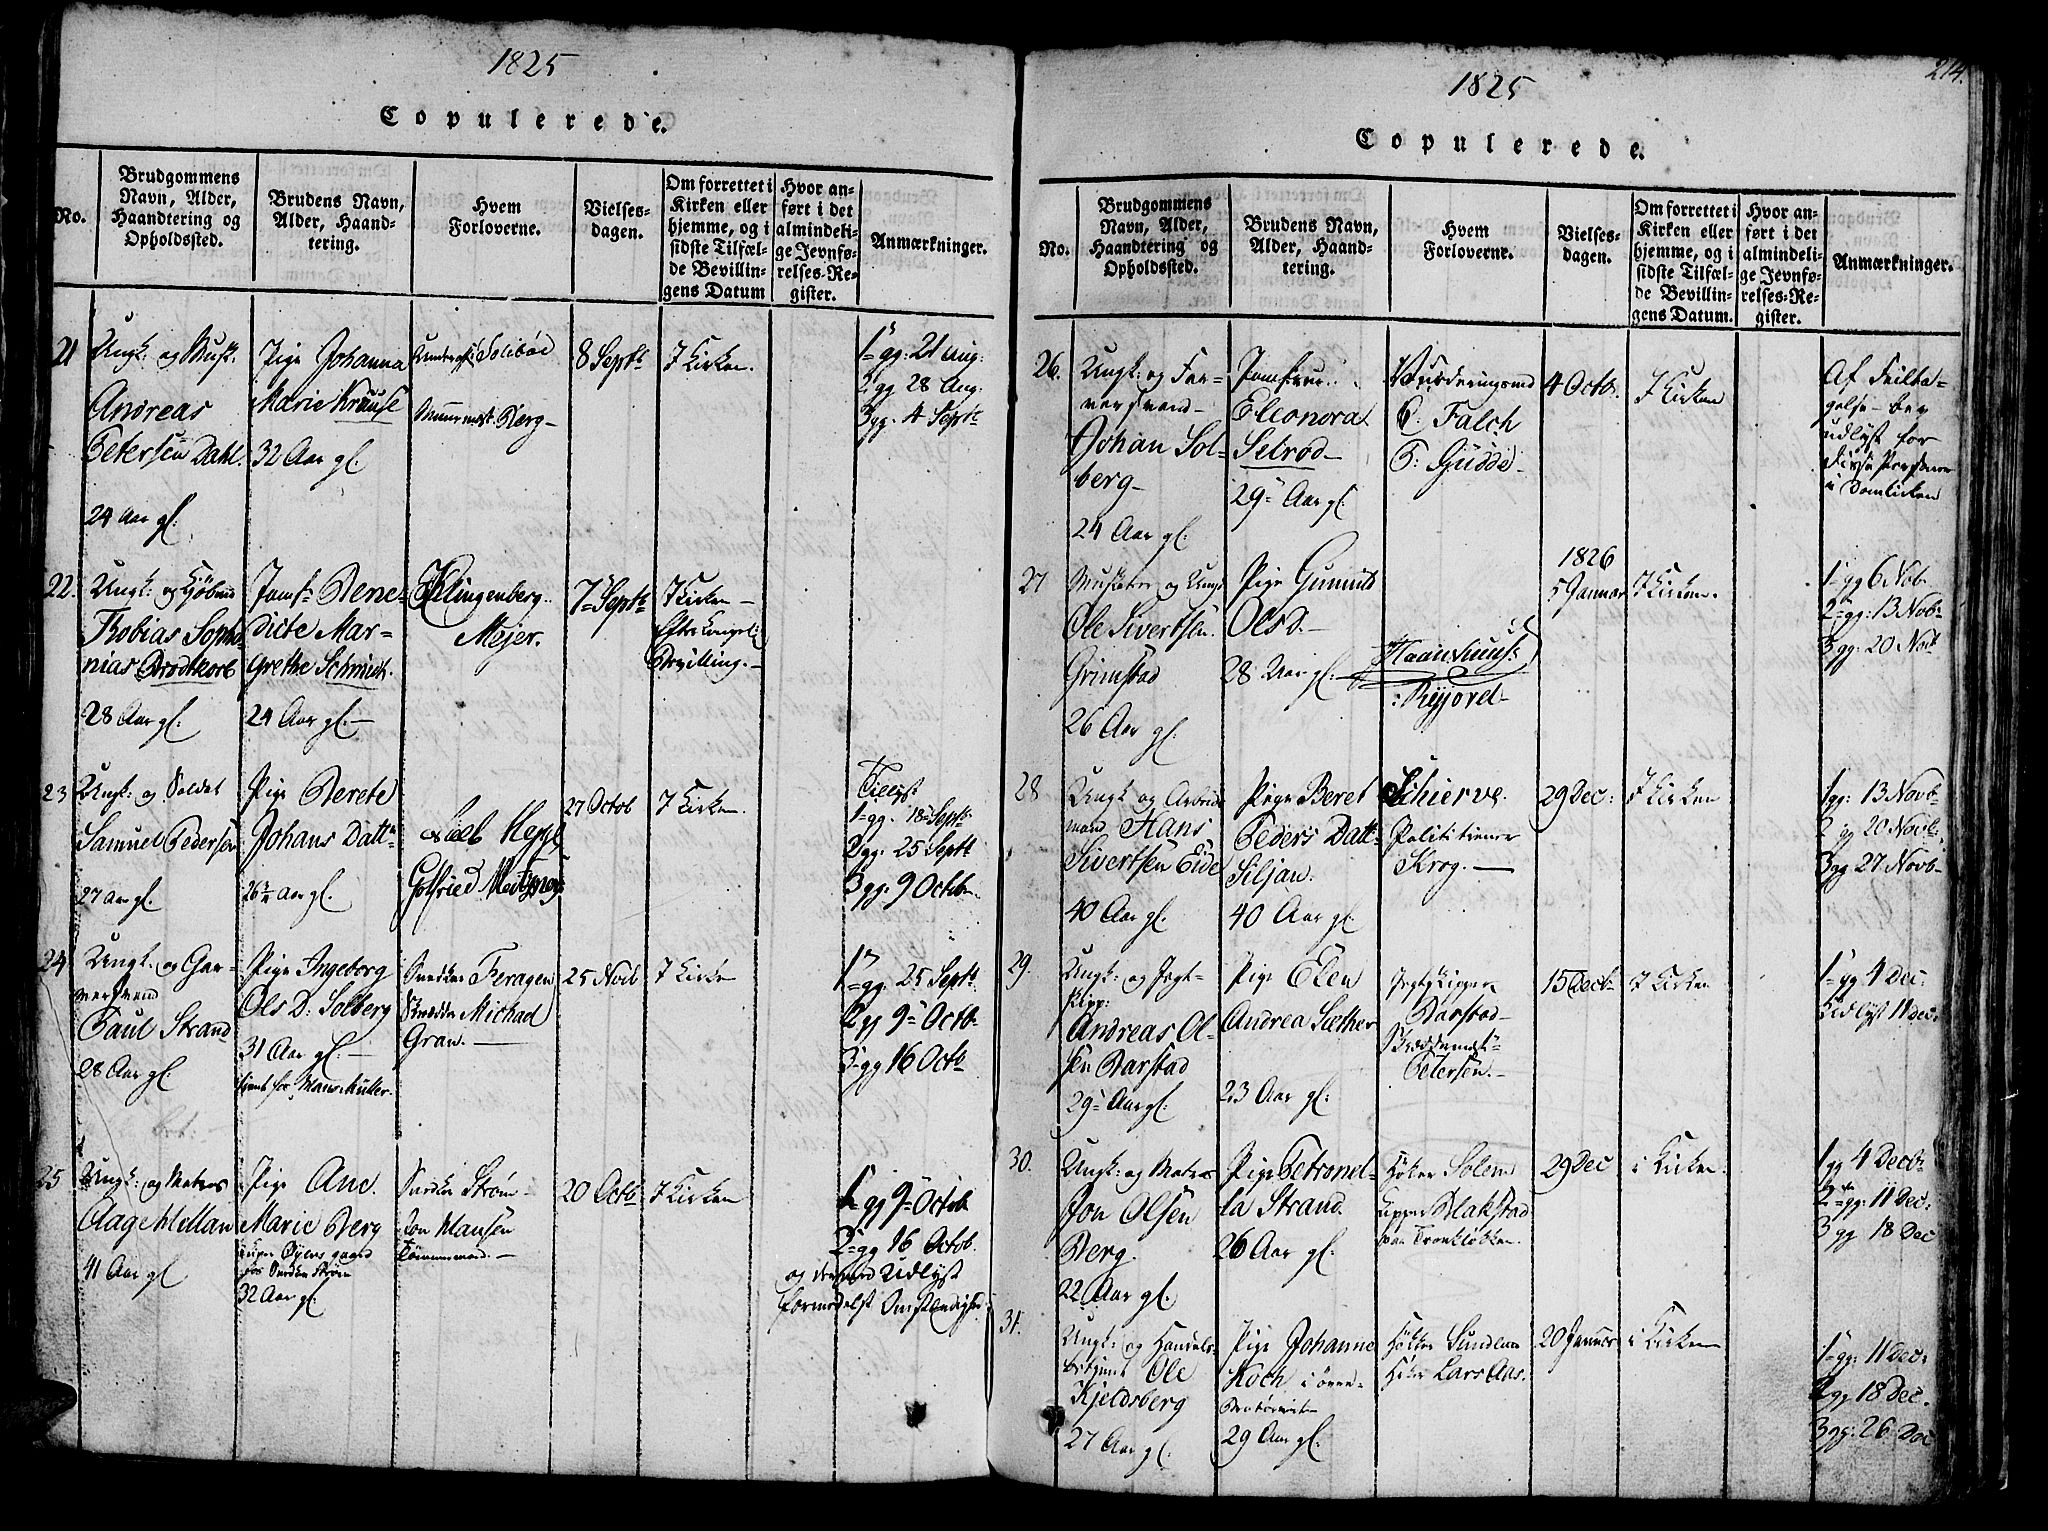 1825
Copulerede.
No.
Brudgommens
Navn, Alder,
Haandtering og
Opholdssted.
Brudens Navn,
Alder, Haand-
tering.
Hvem
Forloverne.
Vielses-
dagen.
Om forrettet i
Kirken eller
hjemme, og i
sidste Tilfæl-
de Bevillin-
gens Datum
Hvor an-
ført i det
almindeli-
ge Jevnfø-
relses-Re-
gister.
Anmærkninger.
21
Ungk: og Musk:
Andreas
Petersen Dahl.
24 Aar gl.
Pige Johanna
Marie Krause
32 Aar gl.
Berg
8 Septr
I Kirken.
1ste gg: 21 Aug:
2 gg 28 Aug.
3 gg. 4 Septr
22.
Ungk: og Kjøbmd
Tobias Sopho-
nias Brodtkorb
28 Aar gl:
Jomf: Bene-
dicte Mar-
grethe Schmidt.
24 Aar gl.
Klingenberg.
Mejer.
7 Septr
I Kirken
Efter Kongel:
Bevilling.
23
Ungk: og Soldat
Samuel Pedersen
27 Aar gl.
Pige Berete
Johans Dattr
26½ Aar gl.
27 Octob
I Kirken.
Tillyst
1 gg. 18 Septr
2 gg: 25 Septr
3 gg: 9 Octbr
24
Ungk: og Gar-
versvend
Paul Strand
28 Aar gl:
Pige Ingeborg
Ols D: Solberg
31 Aar gl.
tient for Mans. Muller.
Snedker Feragen
Skrædder Michael
Gran.
25 Novb
I Kirken
1
gg: 25 Septr
2 gg 9 Octb
3 gg 16 Octb
25
Ungk: og Matros
Aage Mellan
41 Aar gl
Pige Ane
Marie Berg
for Snedker Strøm
32 Aar gl.
Snedker Strøm
Jon Hansen
Tømmermand.
20 Octb
I Kirken
1 gg 9 Octob
2 gg 16 Octob.
og dermed Udlyst
formedelst Omstændighed.
1825
214.
Copulerede.
No.
Brudgommens
Navn, Alder,
Haandtering og
Opholdssted.
Brudens Navn,
Alder, Haand-
tering.
Hvem
Forloverne.
Vielses-
dagen.
Om forrettet i
Kirken eller
hjemme, og i
sidste Tilfæl-
de Bevillin-
gens Datum.
Hvor an-
ført i det
almindeli-
ge Jevnfø-
relses-Re-
gister.
Anmærkninger.
26.
Ungk: og Far-
versvend
Johan Sol-
berg
24 Aar gl:
Jomfrue
Eleonora
Selrod
29 Aar gl.
Vurderingsmd
C. Falch
F: Gudde
4 Octb.
I Kirken
Af Feilta-
gelse
udlyst for
disse Personer
i Domkirken
27
Musketer og Ungk
Ole Sivertsen
Grimstad
26 Aar gl:
Pige Gunnild
Olsd.
28 Aar gl:
1826
5 Januar
I Kirken.
1 gg 6 Nob.
2 gg: 13 Novb
3 gg: 20 Novb
28
Ungk og Arbeids
mand Hans
Sivertsen Eide
40 Aar gl.
Pige Beret
Peders Datt:
Siljan.
40 Aar gl.
Schierve.
Polititiener
Krog.
29 Dec:
I Kirken
1 gg: 13 Novb
2 gg 20 Novb.
3 gg 27 Novb
29.
Ungk: og Jegt-
skipp:
Andreas Ol-
sen Barstad
29 Aar gl.
Pige Elen
Andrea Sæther
23 Aar gl:
Jegtskipper
Barstad
Petersen.
15 Decb
I Kirken
1 gg 4 Dec:
Udlyst 11 dec:
30.
Ungk: og Matros
Jon Olsen
Berg.
22 Aar gl.
Pige Petronel-
la Strand.
26 Aar gl.
Høker Solem
Skipper Blakstad
29 Dec
i Kirken.
1 gg 4 Decb
2 gg: 11 Dec:
3 gg 18 Dec
31.
Ungk: og Handels-
betjent Ole
Kjeldsberg
27 Aar gl.
Pige Johanne
Koch i øvre
29 Aar gl.
Høker Sundem
Høker Lars Aas.
20 Januar
i Kirken
1 gg: 11 Dec:
2 gg 18 Dec.
3 gg: 26 Dec